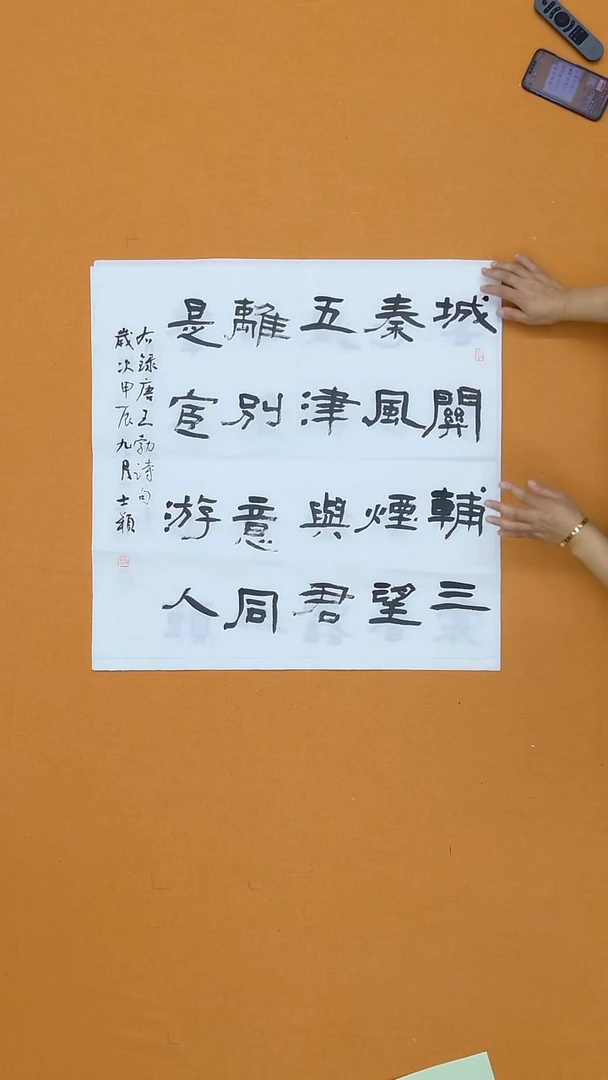 城關輔三
秦風煙望
五津與君
離別意同
是宦游人
右錄唐王勃詩句
歲次甲辰九月士穎